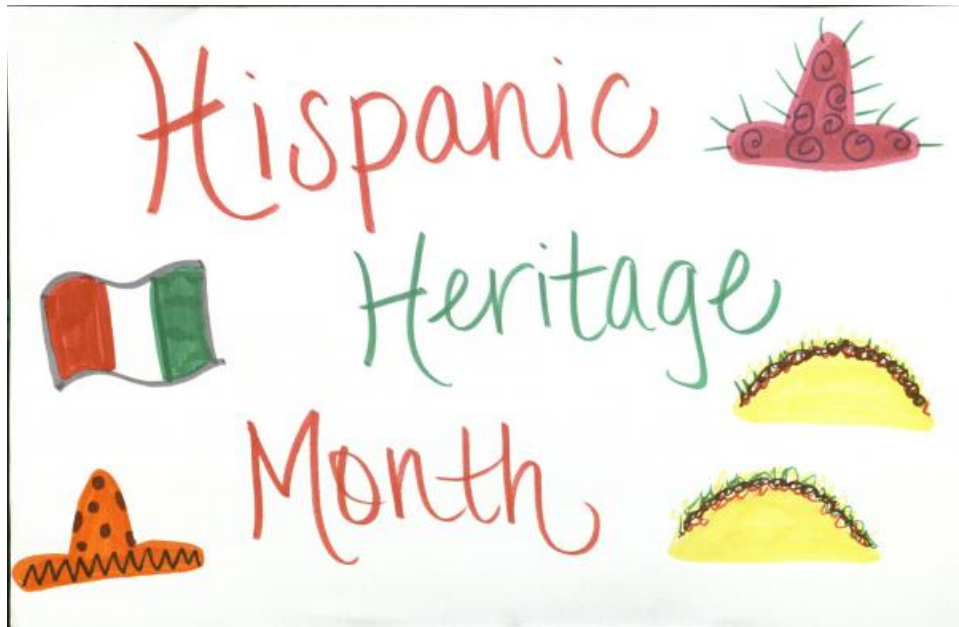 Hispanic
Heritage
Month